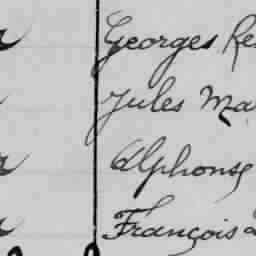 Georges Re
Jules Ma
Alphonse
François